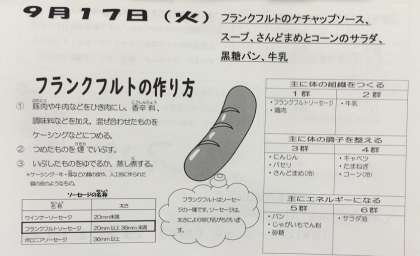 9月17日（火）
フランクフルトのケチャップソース、
スープ、さんどまめとコーンのサラダ、
黒糖パン、牛乳
フランクフルトの作り方
① 豚肉や牛肉などをひき肉にし、香辛料、
調味料などを加え、混ぜ合わせたものを
ケーシングなどにつめる。
② つめたものを煙でいぶす。
③ いぶしたものをゆでるか、蒸しする。
ソーセージの名称
名称 太さ
ウインナーソーセージ 20mm未満
フランクフルトソーセージ 20mm以上36mm未満
ボロニアソーセージ 36mm以上
フランクフルトはソーセージの一種です。ソーセージは、
太さにより呼び名がちがいます。
主に体の組織をつくる
1群 2群
・フランクフルトソーセージ ・牛乳
・鶏肉
主に体の調子を整える
3群 4群
・にんじん ・キャベツ
・パセリ ・たまねぎ
・さんどまめ(冷) ・コーン(冷)
主にエネルギーになる
5群 6群
・パン ・サラダ油
・じゃがいもでん粉
・砂糖